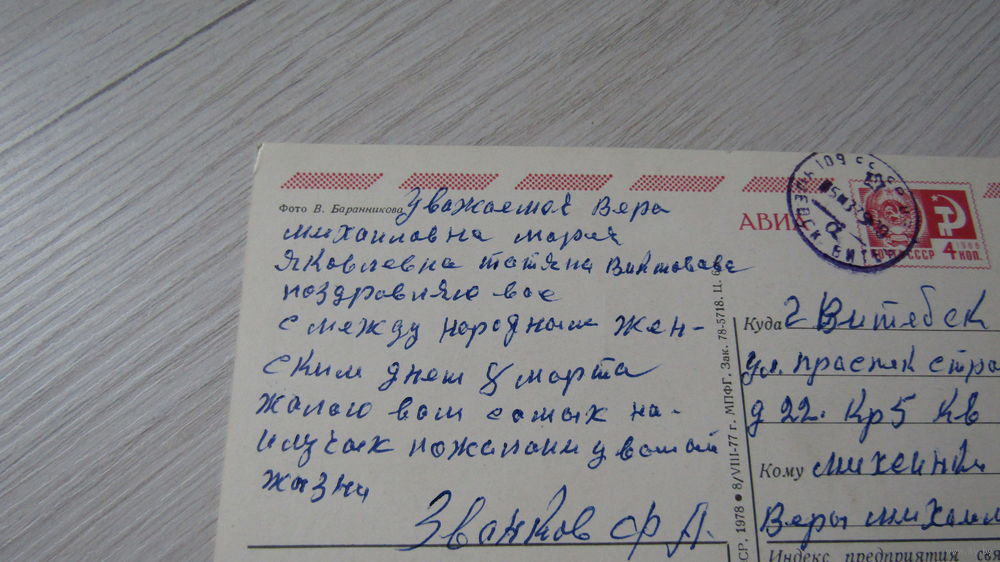 Фото В. Баранникова
Уважаемая Вера
михаиловна мария
Яковлевна татяна Викторовава
поздровляю вас
с между народным жен-
ским днем 8 марта
жалаю вам самых на-
илучьих пожалании у вашай
жизни
Званков Ф А.
СР. 1978 • 8/VIII-77 г. МПФГ. Зак. 78-5718. Ц. 6
АВИА
ПОЧТА СССР
1966
4 КОП.
Куда г Витебск
ул. праспек стро
д 22. кр 5 кв
Кому михеинки
Веры михаил
Индекс предприятия свя